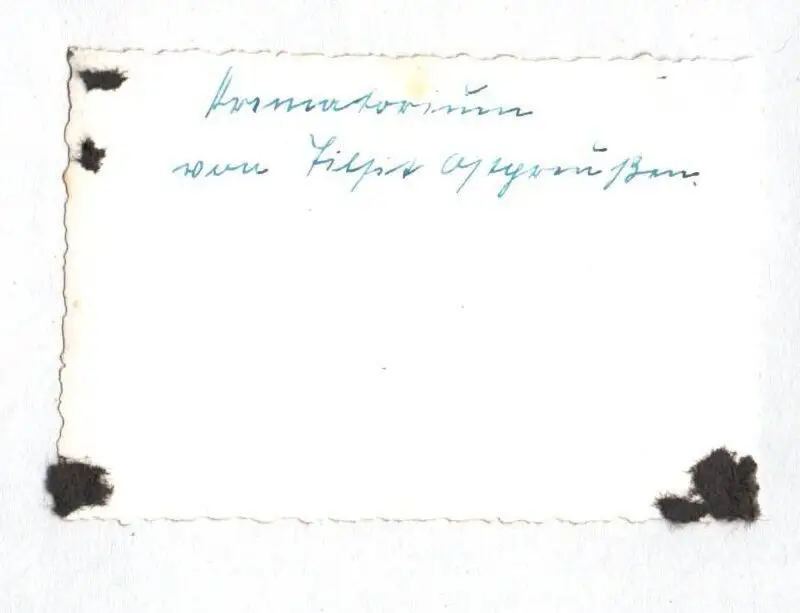 Krematorium
von Tilsit Ostpreußen.